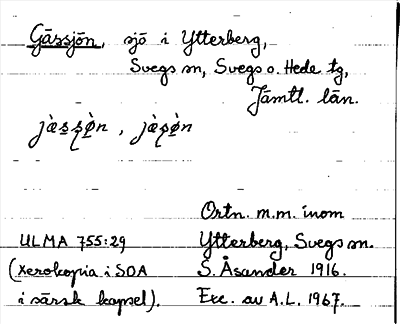 Gässjön, sjö i Ytterberg,
Svegs sn, Svegs o. Hede tg,
Jämtl. län.
Ortn. m.m. inom
ULMA 755:29 Ytterberg, Svegs sn.
(Xerokopia i SOA S. Åsander 1916.
i särsk kapsel). Exc. av A.L. 1967.